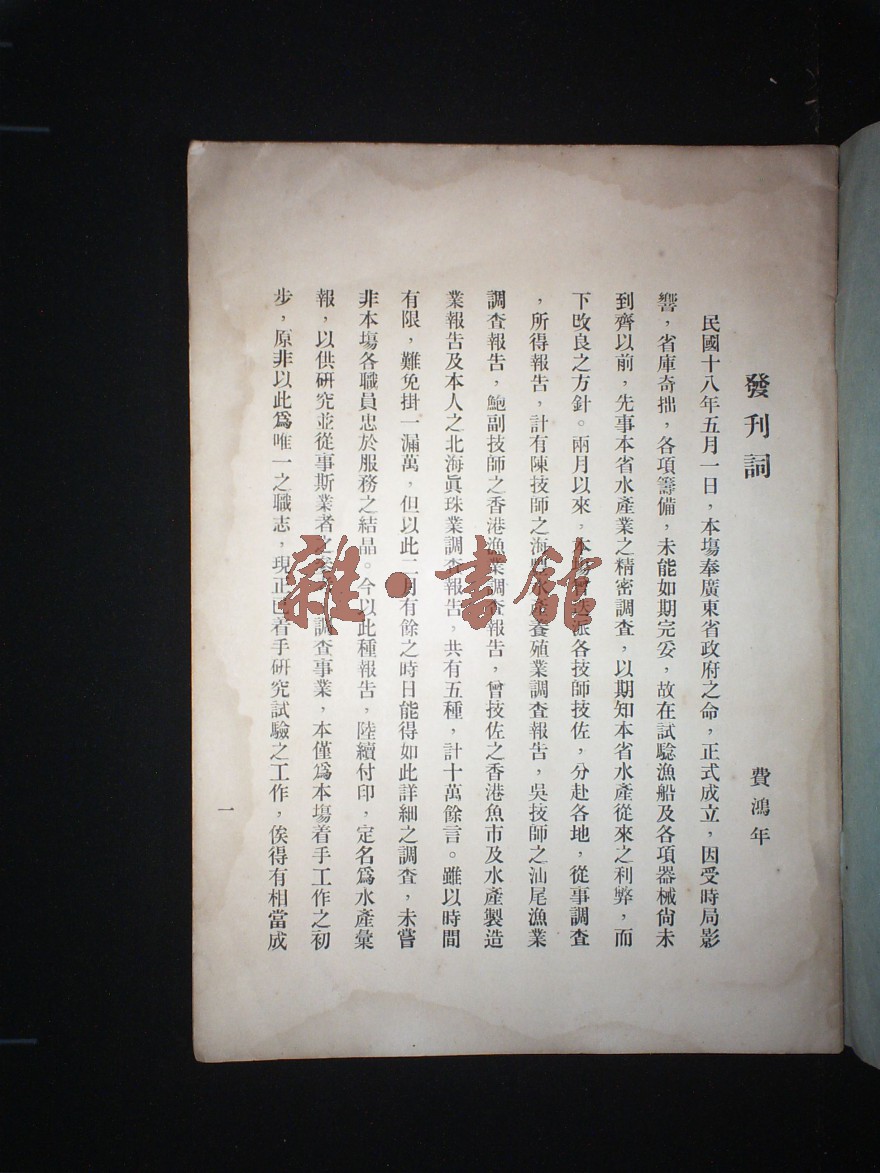 發刊詞
費鴻年
民國十八年五月一日，本塲奉廣東省政府之命，正式成立，因受時局影
響，省庫奇拙，各項籌備，未能如期完妥，故在試驗漁船及各項器械尙未
到齊以前，先事本省水產業之精密調查，以期知本省水產從來之利弊，而
下改良之方針。兩月以來，本塲曾派各技師技佐，分赴各地，從事調查
，所得報告，計有陳技師之海豐水產養殖業調查報告，吳技師之汕尾漁業
調查報告，鮑副技師之香港漁業調查報告，曾技佐之香港魚市及水產製造
業報告及本人之北海眞珠業調查報告，共有五種，計十萬餘言。雖以時間
有限，難免掛一漏萬，但以此二月有餘之時日能得如此詳細之調查，未嘗
非本塲各職員忠於服務之結晶。今以此種報告，陸續付印，定名爲水產彙
報，以供研究並從事斯業者之參 調查事業，本僅爲本塲着手工作之初
步，原非以此爲唯一之職志，現正已着手研究試驗之工作，俟得有相當成
一
雜·書館